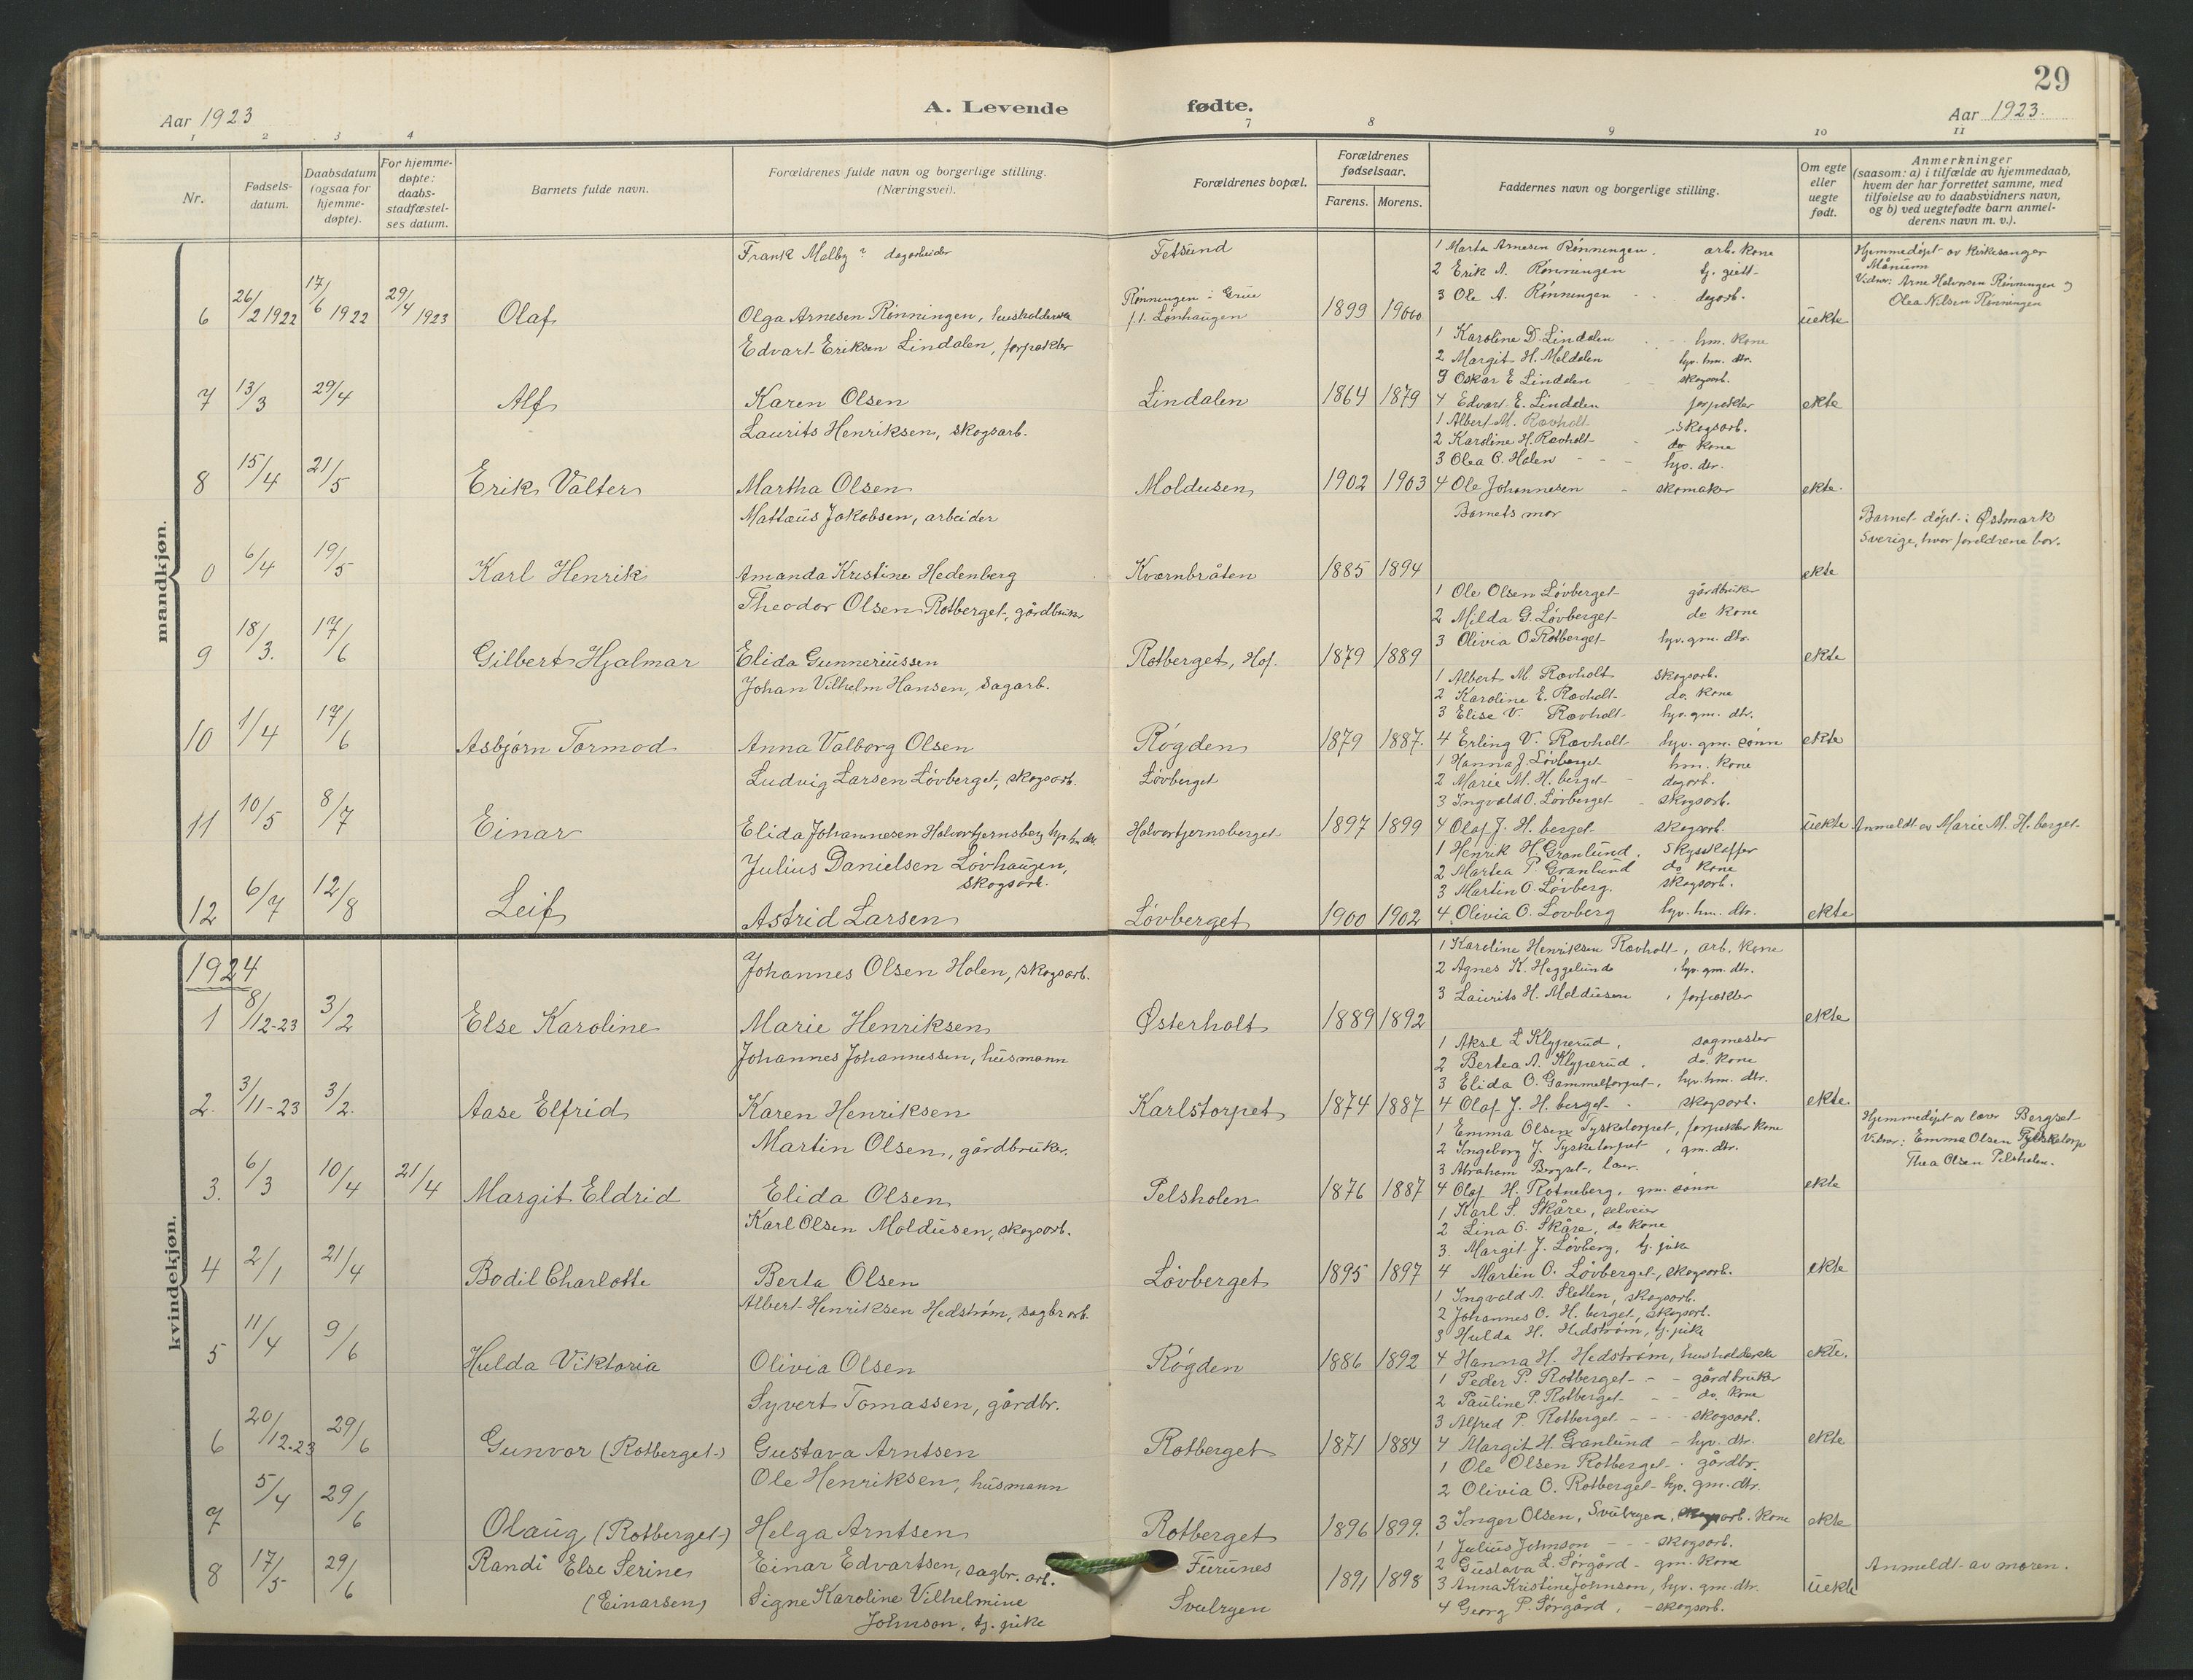 29
Aar 1923
A. Levende fødte.
Aar 1923.
1 2 3 4 7 8 9 10 11
Nr.
Fødsels-
datum.
Daabsdatum
(ogsaa for
hjemme-
døpte).
For hjemme-
døpte:
daabs-
stadfæstel-
ses datum.
Barnets fulde navn.
Forældrenes fulde navn og borgerlige stilling.
(Næringsvei).
Forældrenes bopæl.
Forældrenes
fødselsaar.
Farens. Morens.
Faddernes navn og borgerlige stilling.
Om egte
eller
uegte
født.
Anmerkninger
(saasom: a) i tilfælde av hjemmedaab,
hvem der har forrettet samme, med
tilføielse av to daabsvidners navn,
og b) ved uegtefødte barn anmel-
derens navn m. v.).
mandkjøn.
6 26/2 1922 17/6 1922 29/4 1923 Olaf
Frank Melby ? dagarbeider
Olga Arnesen Rønningen, husholderske
Fetsund
Rønningen i Grue
f.t. Lønhaugen
1899 1900
1 Marta Arnesen Rønningen, arb. kone
2 Erik A. Rønningen tj. gutt
3 Ole A. Rønningen dagarb.
uekte
Hjemmedøpt av kirkesanger
Månum
Vidner: Arne Halvorsen Rønningen og
Olea Nilsen Rønningen
7 13/3 29/4 Alf
Edvart Eriksen Lindalen, forpakter
Karen Olsen
Lindalen 1864 1879
1 Karoline D. Lindalen hm. kone
2 Margit H. Moldalen hyv. hm. dtr.
3 Oskar E Lindalen skogsarb.
4 Edvart E. Lindalen forpakter
ekte
8 15/4 21/5 Erik Valter
Laurits Henriksen, skogsarb.
Martha Olsen
Moldusen 1902 1903
1 Albert M. Ravholt skogsarb.
2 Karoline H. Ravholt do kone
3 Olea O. Holen hyv. dtr.
4 Ole Johannesen skomaker
ekte.
0 6/4 19/5 Karl Henrik
Mattæus Jakobsen, arbeider
Amanda Kristine Hedenberg
Kværnbråten 1885 1894
Barnets mor
ekte
Barnet døpt i Østmark
Sverige, hvor foreldrene bor.
9 18/3. 17/6 Gilbert Hjalmar
Theodor Olsen Rotberget, gårdbruker
Elida Gunneriussen
Rotberget, Hof. 1879 1889
1 Ole Olsen Løvberget gårdbruker
2 Milda G. Løvberget do kone
3 Olivia O. Rotberget hyv. gm. dtr.
ekte
10 1/4 17/6 Asbjørn Tormod
Johan Vilhelm Hansen, sagarb.
Anna Valborg Olsen
Røgden 1879 1887.
1 Albert M. Ravholt skogsarb.
2 Karoline E. Ravholt do. kone
3 Elise V. Ravholt hyv. gm. dtr.
4 Erling V. Ravholt hyv. gm. sønn
ekte
11 10/5 8/7 Einar
Ludvig Larsen Løvberget, skogsarb.
Elida Johannesen Halvortjernsberg hyv. hm. dtr.
Løvberget
Halvortjernsberget 1897 1899
1 Hanna J. Løvberget hm. kone
2 Marie M. H. berget dagarb.
3 Ingvald O. Løvberget skogsarb.
4 Olaf J. H. berget skogsarb.
uekte Anmeldt av Marie M. H. berget
12 6/7 12/8 Leif
Julius Danielsen Løvhaugen,
skogsarb.
Astrid Larsen
Løvberget 1900 1902
1 Henrik H. Granlund, skysskaffer
2 Martea P. Granlund do kone
3 Martin O. Løvberg. skogsarb.
4. Olivia O. Løvberg hyv. hm. dtr.
ekte
kvindekjøn.
1924
1 8/12-23 3/2 Else Karoline
Johannes Olsen Holen, skogsarb.
Marie Henriksen
Østerholt 1889 1892
1 Karoline Henriksen Ravholt, arb. kone
2 Agnes K. Heggelund, hyv. gm. dtr.
3 Laurits H. Moldusen, forpakter
ekte
2. 3/11-23 3/2. Aase Elfrid
Johannes Johannessen, husmann
Karen Henriksen
Karlstorpet 1874 1887
1 Aksel L Klyperud, sagmester
2 Bertea A. Klyperud. do kone
3 Elida O. Gammeltorpet, hyv. hm. dtr.
4 Olaf J. H. berget skogsarb.
ekte.
3. 6/3 10/4 21/4 Margit Eldrid
Martin Olsen, gårdbruker.
Elida Olsen
Pelsholen 1876 1887
1 Emma Olsen Tysketorpet, forpakter kone
2 Ingeborg J. Tysketorpet, gm. dtr.
3 Abraham Bergset, lærer.
4 Olaf H. Rotneberg, gm. sønn
ekte
Hjemmedøpt av lærer Bergset
Vidner: Emma Olsen Tysketorp
Thea Olsen Pelsholen.
4 2/1 21/4 Bodil Charlotte
Karl Olsen Moldusen, skogsarb.
Berta Olsen
Løvberget 1895 1897
1 Karl S. Skåre, selveier
2 Lina O. Skåre, do kone
3. Margit J. Løvberg, tj. pike
4 Martin O. Løvberget, skogsarb.
ekte
5 11/4 9/6 Hulda Viktoria
Albert Henriksen Hedstrøm, sagbr arb.
Olivia Olsen
Røgden 1886 1892
1 Ingvald A. Sletten, skogsarb.
2 Johannes O. H. berget, skogsarb.
3 Hulda H. Hedstrøm, tj. pike
4 Hanna H. Hedstrøm, husholderske
ekte.
6 20/12-23 29/6 Gunvor (Rotberget)
Syvert Tomassen, gårdbr.
Gustava Arntsen
Rotberget 1871 1884
1 Peder P. Rotberget gårdbruker
2 Pauline P. Rotberget do. kone
3 Alfred P. Rotberget skogsarb.
4 Margit H. Granlund hyv. dtr.
ekte
7 5/4 29/6 Olaug (Rotberget)
Ole Henriksen, husmann
Helga Arntsen
Rotberget 1896 1899.
1 Ole Olsen Rotberget gårdbr.
2 Olivia O. Rotberget hyv. gm. dtr.
3 Inger Olsen, Svulryen, skogsarb. kone
ekte
8 17/5 29/6 Randi Else Serine
(Einarsen)
Einar Edvartsen, sagbr. arb.
Signe Karoline Vilhelmine
Johnson, tj. pike
Furunes
Svulryen
1891 1898
1 Julius Johnson skogsarb.
2 Gustava L. Sørgård gm. kone
3 Anna Kristine Johnson, hyv. gm. dtr.
4 Georg P. Sørgård, skogsarb.
uekte
Anmeldt av moren.